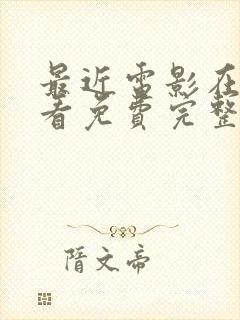 最近雷影在
看免费完整
隋文帝